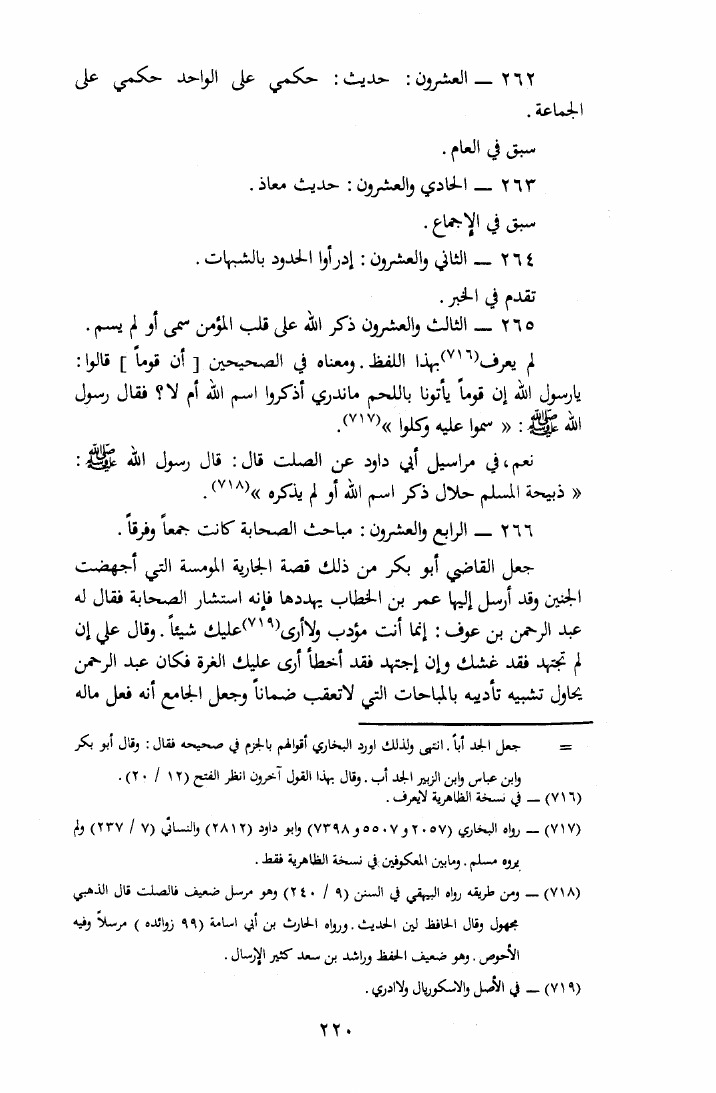 ٢٦٢ ــ العشرون : حديث : حكمي على الواحد حكمي على
الجماعة .
سبق في العام .
٢٦٣ ــ الحادي والعشرون : حديث معاذ .
سبق في الإجماع .
٢٦٤ ــ الثاني والعشرون : إدرأوا الحدود بالشبهات .
تقدم في الخبر .
٢٦٥ ــ الثالث والعشرون ذكر الله على قلب المؤمن سمى أو لم يسم .
لم يعرف(٧١٦) بهذا اللفظ . ومعناه في الصحيحين [ أن قوماً ] قالوا :
يارسول الله إن قوماً يأتونا باللحم ماندري أذكروا اسم الله أم لا؟ فقال رسول
الله ﷺ : « سموا عليه وكلوا »(٧١٧).
نعم، في مراسيل أبي داود عن الصلت قال : قال رسول الله ﷺ :
« ذبيحة المسلم حلال ذكر اسم الله أو لم يذكره »(٧١٨).
٢٦٦ ــ الرابع والعشرون : مباحث الصحابة كانت جمعاً وفرقاً .
جعل القاضي أبو بكر من ذلك قصة الجارية المومسة التي أجهضت
الجنين وقد أرسل إليها عمر بن الخطاب يهددها فإنه استشار الصحابة فقال له
عبد الرحمن بن عوف : إنما أنت مؤدب ولاأرى(٧١٩) عليك شيئاً . وقال علي إن
لم تجتهد فقد غشك وإن إجتهد فقد أخطأ أرى عليك الغرة فكان عبد الرحمن
يحاول تشبيه تأديبه بالمباحات التي لاتعقب ضماناً وجعل الجامع أنه فعل ماله
= جعل الجد أباً . انتهى ولذلك اورد البخاري أقوالهم بالجزم في صحيحه فقال : وقال أبو بكر
وابن عباس وابن الزبير الجد أب . وقال بهذا القول آخرون انظر الفتح (١٢ / ٢٠) .
(٧١٦) ــ في نسخة الظاهرية لايعرف .
(٧١٧) ــ رواه البخاري (٢٠٥٧ و ٥٥٠٧ و ٧٣٩٨) وابو داود (٢٨١٢) والنسائي (٧ / ٢٣٧) ولم
يروه مسلم . ومابين المعكوفين في نسخة الظاهرية فقط .
(٧١٨) ــ ومن طريقه رواه البيهقي في السنن (٩ / ٢٤٠) وهو مرسل ضعيف فالصلت قال الذهبي
مجهول وقال الحافظ لين الحديث . ورواه الحارث بن أبي اسامة (٩٩ زوائده ) مرسلاً وفيه
الأحوص . وهو ضعيف الحفظ وراشد بن سعد كثير الإرسال .
(٧١٩) ــ في الأصل والاسكوريال ولاادري .
٢٢٠